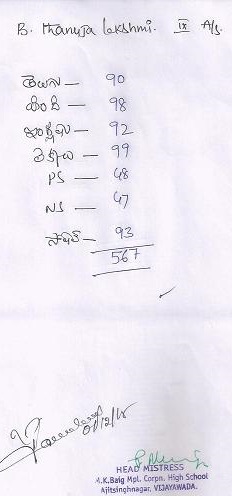 B. Thanuja lakshmi. IX A/s.
తెలుగు — 90
హిందీ — 98
ఇంగ్లీషు — 92
లెక్కలు — 99
PS — 48
NS — 47
సోషల్ — 93
567
HEAD MISTRESS
A.K.Baig Mpl. Corpn. High School
Ajitsinghnagar, VIJAYAWADA.